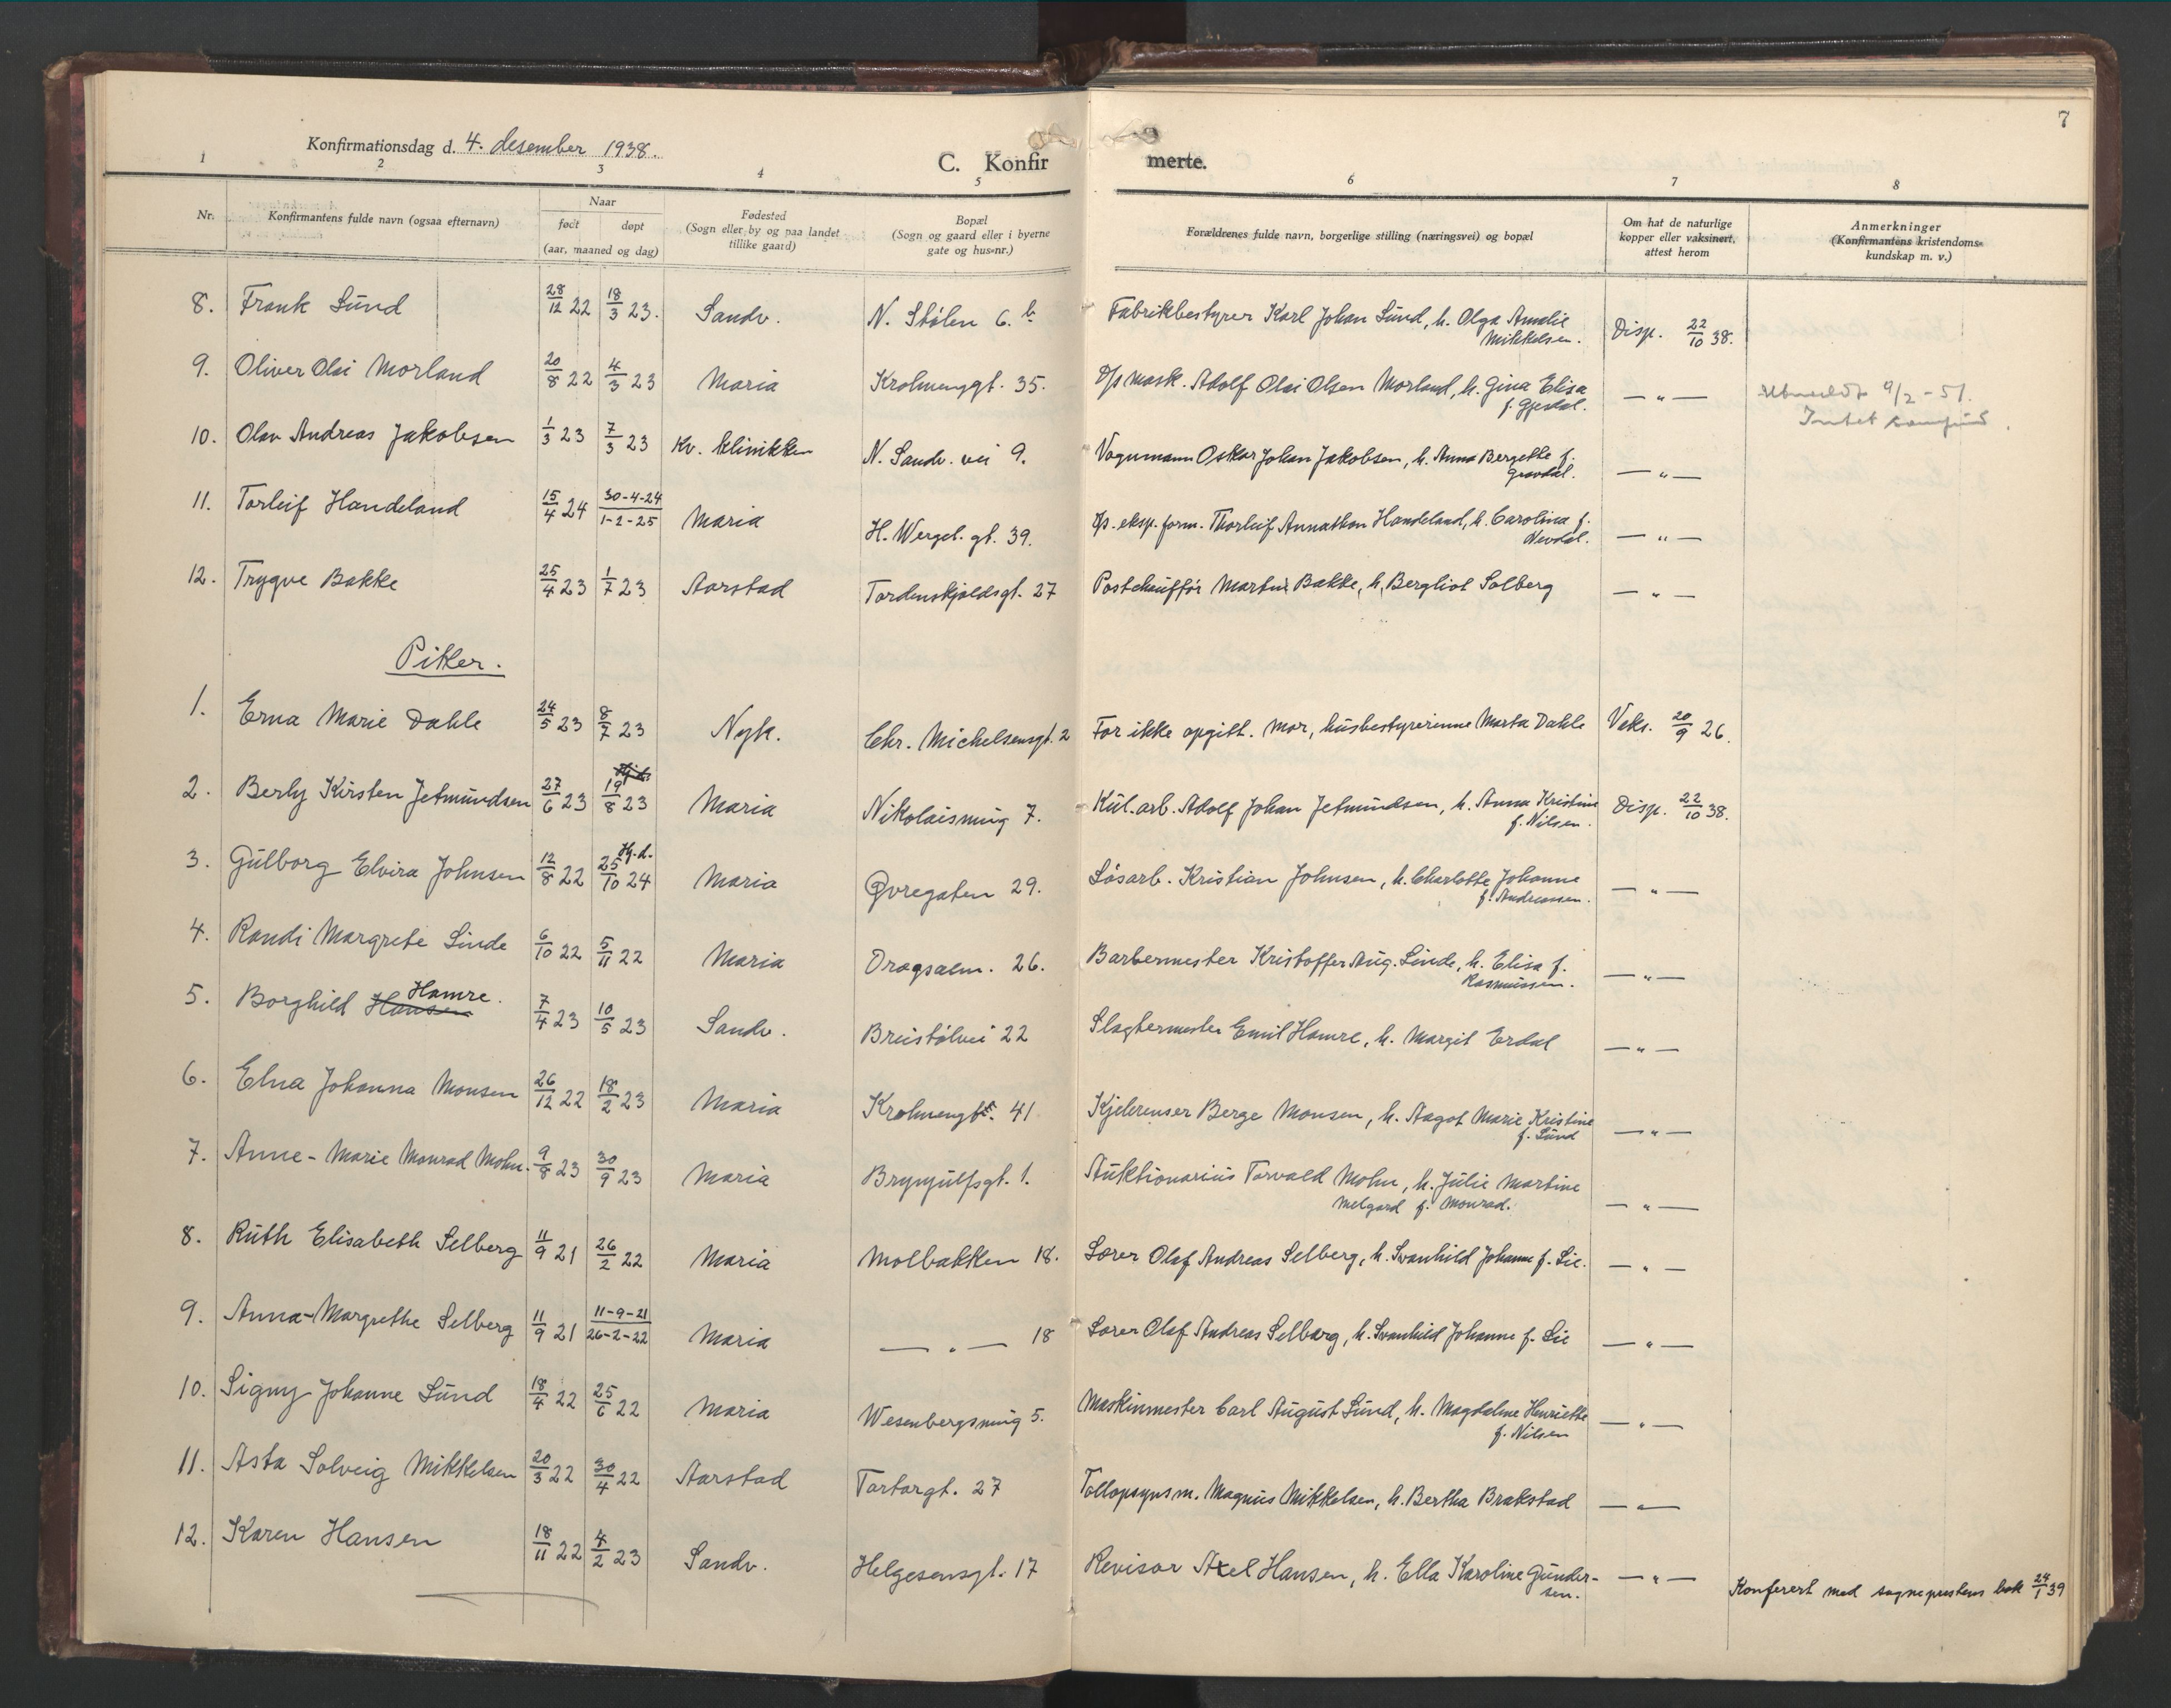 7
Konfirmationsdag d. 4. desember 1938.
C. Konfirmerte.
1 2 3 4 5 6 7 8
Nr.
Konfirmantens fulde navn (ogsaa efternavn)
Naar
født døpt
(aar, maaned og dag)
Fødested
(Sogn eller by og paa landet
tillike gaard)
Bopæl
(Sogn og gaard eller i byerne
gate og hus-nr.)
Forældrenes fulde navn, borgerlige stilling (næringsvei) og bopæl
Om hat de naturlige
kopper eller vaksinert,
attest herom
Anmerkninger
(Konfirmantens kristendoms-
kundskap m. v.)
8. Frank Lund 28/12 22 18/3 23. Sandv. N. Stølen 6. b. Fabrikbestyrer Karl Johan Lund, h. Olga Amalie
Mikkelsen. Disp. 22/10 38.
9. Oliver Olai Morland 20/8 22 4/3 23 Maria Krohnenggt. 35. D/s mask. Adolf Olai Olsen Morland, h. Gina Elisa
f. Gjesdal. — " — Utmeldt 9/2 - 51.
Intet samfund.
10. Olav Andreas Jakobsen 1/3 23 7/3 23 Kv. klinikken N. Sandv. vei 9. Vognmann Oskar Johan Jakobsen, h. Anna Bergette f.
Gravdal. — " —
11. Torleif Handeland 15/4 24 30-4-24
1-2-25 Maria H. Wergel. gt. 39. D/s. eksp. form. Thorleif Annathon Handeland, h. Carolina f.
Nevdal. — " —
12. Trygve Bakke 25/4 23 1/7 23 Aarstad Tordenskjoldsgt. 27 Postchauffør Martin Bakke, h. Bergliot Solberg — " —
Piker.
1. Erna Marie Dahle 24/5 23 8/7 23 Nyk. Chr. Michelsensgt. 2 Far ikke opgitt. Mor, husbestyrerinne Marta Dahle Vaks. 20/9 26.
2. Berly Kirsten Jetmundsen 27/6 23 Hj.d. 19/8 23 Maria Nikolaismug 7. Kul.arb. Adolf Johan Jetmundsen, h. Anna Kristine
f. Nilsen. Disp. 22/10 38.
3. Gulborg Elvira Johnsen 12/8 22 Hj.d. 25/10 24 Maria Øvregaten 29. Løsarb. Kristian Johnsen, h. Charlotte Johanne
f. Andreassen. — " —
4. Randi Margrete Linde 6/10 22 5/11 22 Maria Dragsalm. 26. Barbermester Kristoffer Aug. Linde, h. Elisa f.
Rasmussen. — " —
5. Borghild Hansen Hamre. 7/4 23 10/5 23 Sandv. Breistølvei 22 Slagtermester Emil Hamre, h. Margit Erdal — " —
6. Elna Johanna Monsen 26/12 22 18/2 23 Maria Krohnengt. 41 Kjelrenser Berge Monsen, h. Aagot Marie Kristine
f. Lund — " —
7. Anne-Marie Monrad Mohn. 9/8 23 30/9 23 Maria Brynjulfsgt. 1. Auktionarius Torvald Mohn, h. Julie Martine
Melgard f. Monrad. — " —
8. Ruth Elisabeth Selberg 11/9 21 26/2 22 Maria Molbakken 18. Lærer Olaf Andreas Selberg, h. Svanhild Johanne f. Lie. — " —
9. Anna-Margrethe Selberg 11/9 21 11-9-21
26-2-22 Maria — " — 18 Lærer Olaf Andreas Selberg, h. Svanhild Johanne f. Lie — " —
10. Signy Johanne Lund 18/4 22 25/6 22 Maria Wesenbergsmug 5. Maskinmester Carl August Lund, h. Magdalene Henriette
f. Nilsen — " —
11. Asta Solveig Mikkelsen 20/3 22 30/4 22 Aarstad Tartargt. 27 Tollopsynsm. Magnus Mikkelsen, h. Bertha Brakstad — " —
12. Karen Hansen 18/11 22 4/2 23 Sandv. Helgesensgt. 17 Revisor Axel Hansen, h. Ella Karoline Gunder-
sen. — " —
Konferert med sogneprestens bok 24/1 39